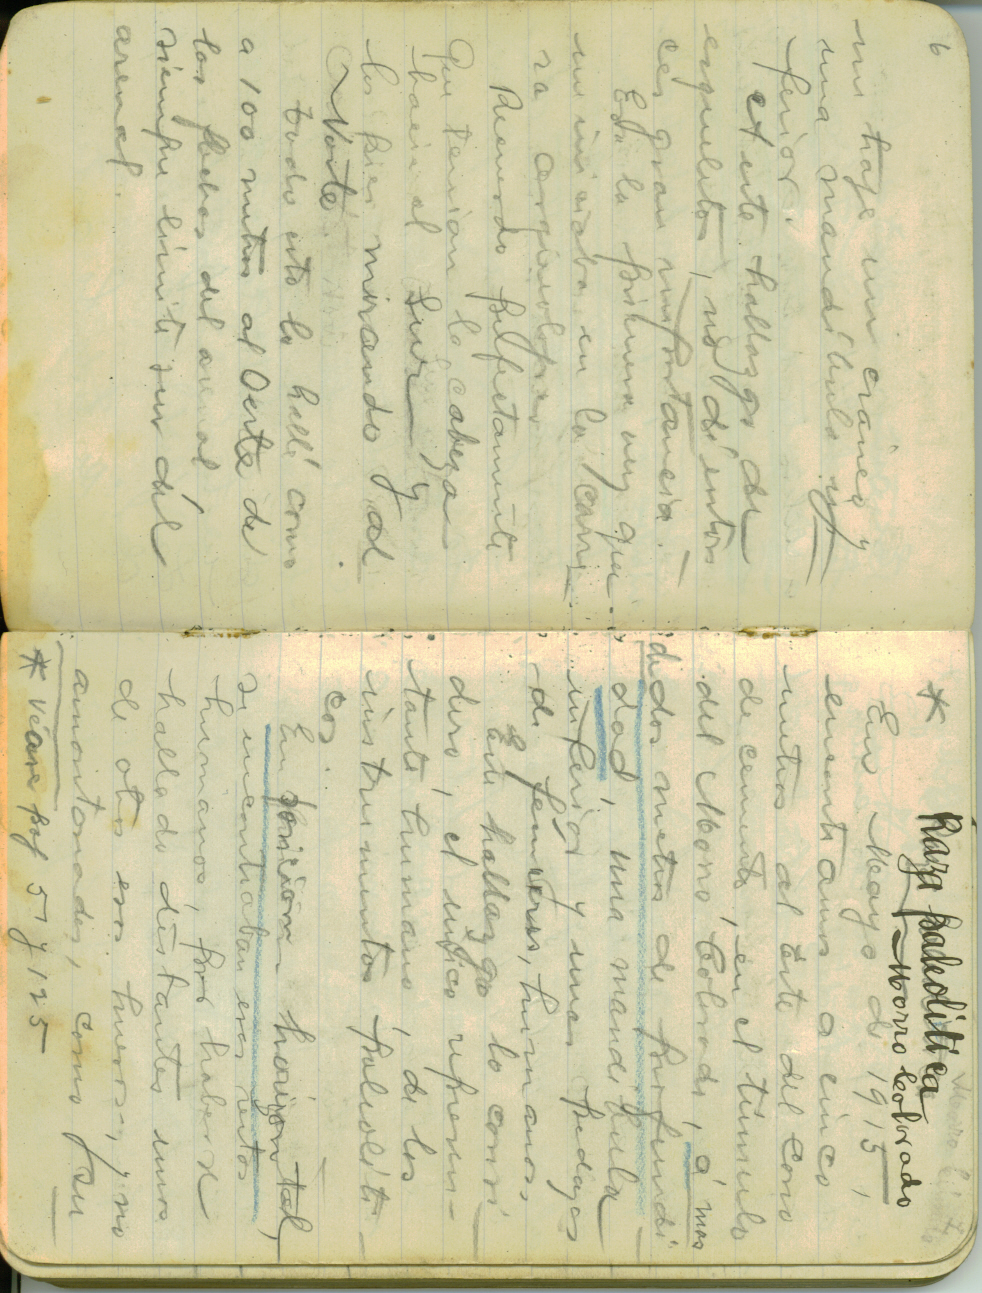 6
un traje un cráneo y
una mandíbula in-
ferior.
A este hallazgo de
esqueletos, no dí entón
ces gran importancia.
Era la primera vez que
me iniciaba en la carre
ra arqueológica
Recuerdo perfectamente
que tenían la cabeza
hacia el Sur y
los pies mirando al
Norte.
todo esto lo hallé como
a 100 metros al Oeste de
las flechas del arenal
siempre límite sur del
arenal.
Raza paleolítica
* Morro Colorado
En Mayo de 1915,
encontramos a cinco
metros al Este del cono
de cemento, en el túmulo
del Morro Colorado, á mas
de dos metros de profundi-
dad, una mandíbula
inferior y unos pedazos
de femures, humanos,
Este hallazgo lo consi
dero, el único represen-
tante humano, de los
instrumentos paleolíti-
cos.
En posición horizontal,
se encontraban esos restos
humanos, por haberse
hallado distantes unos
de otros esos huesos, y no
amontonados, como
* Véase pag 57 y 125